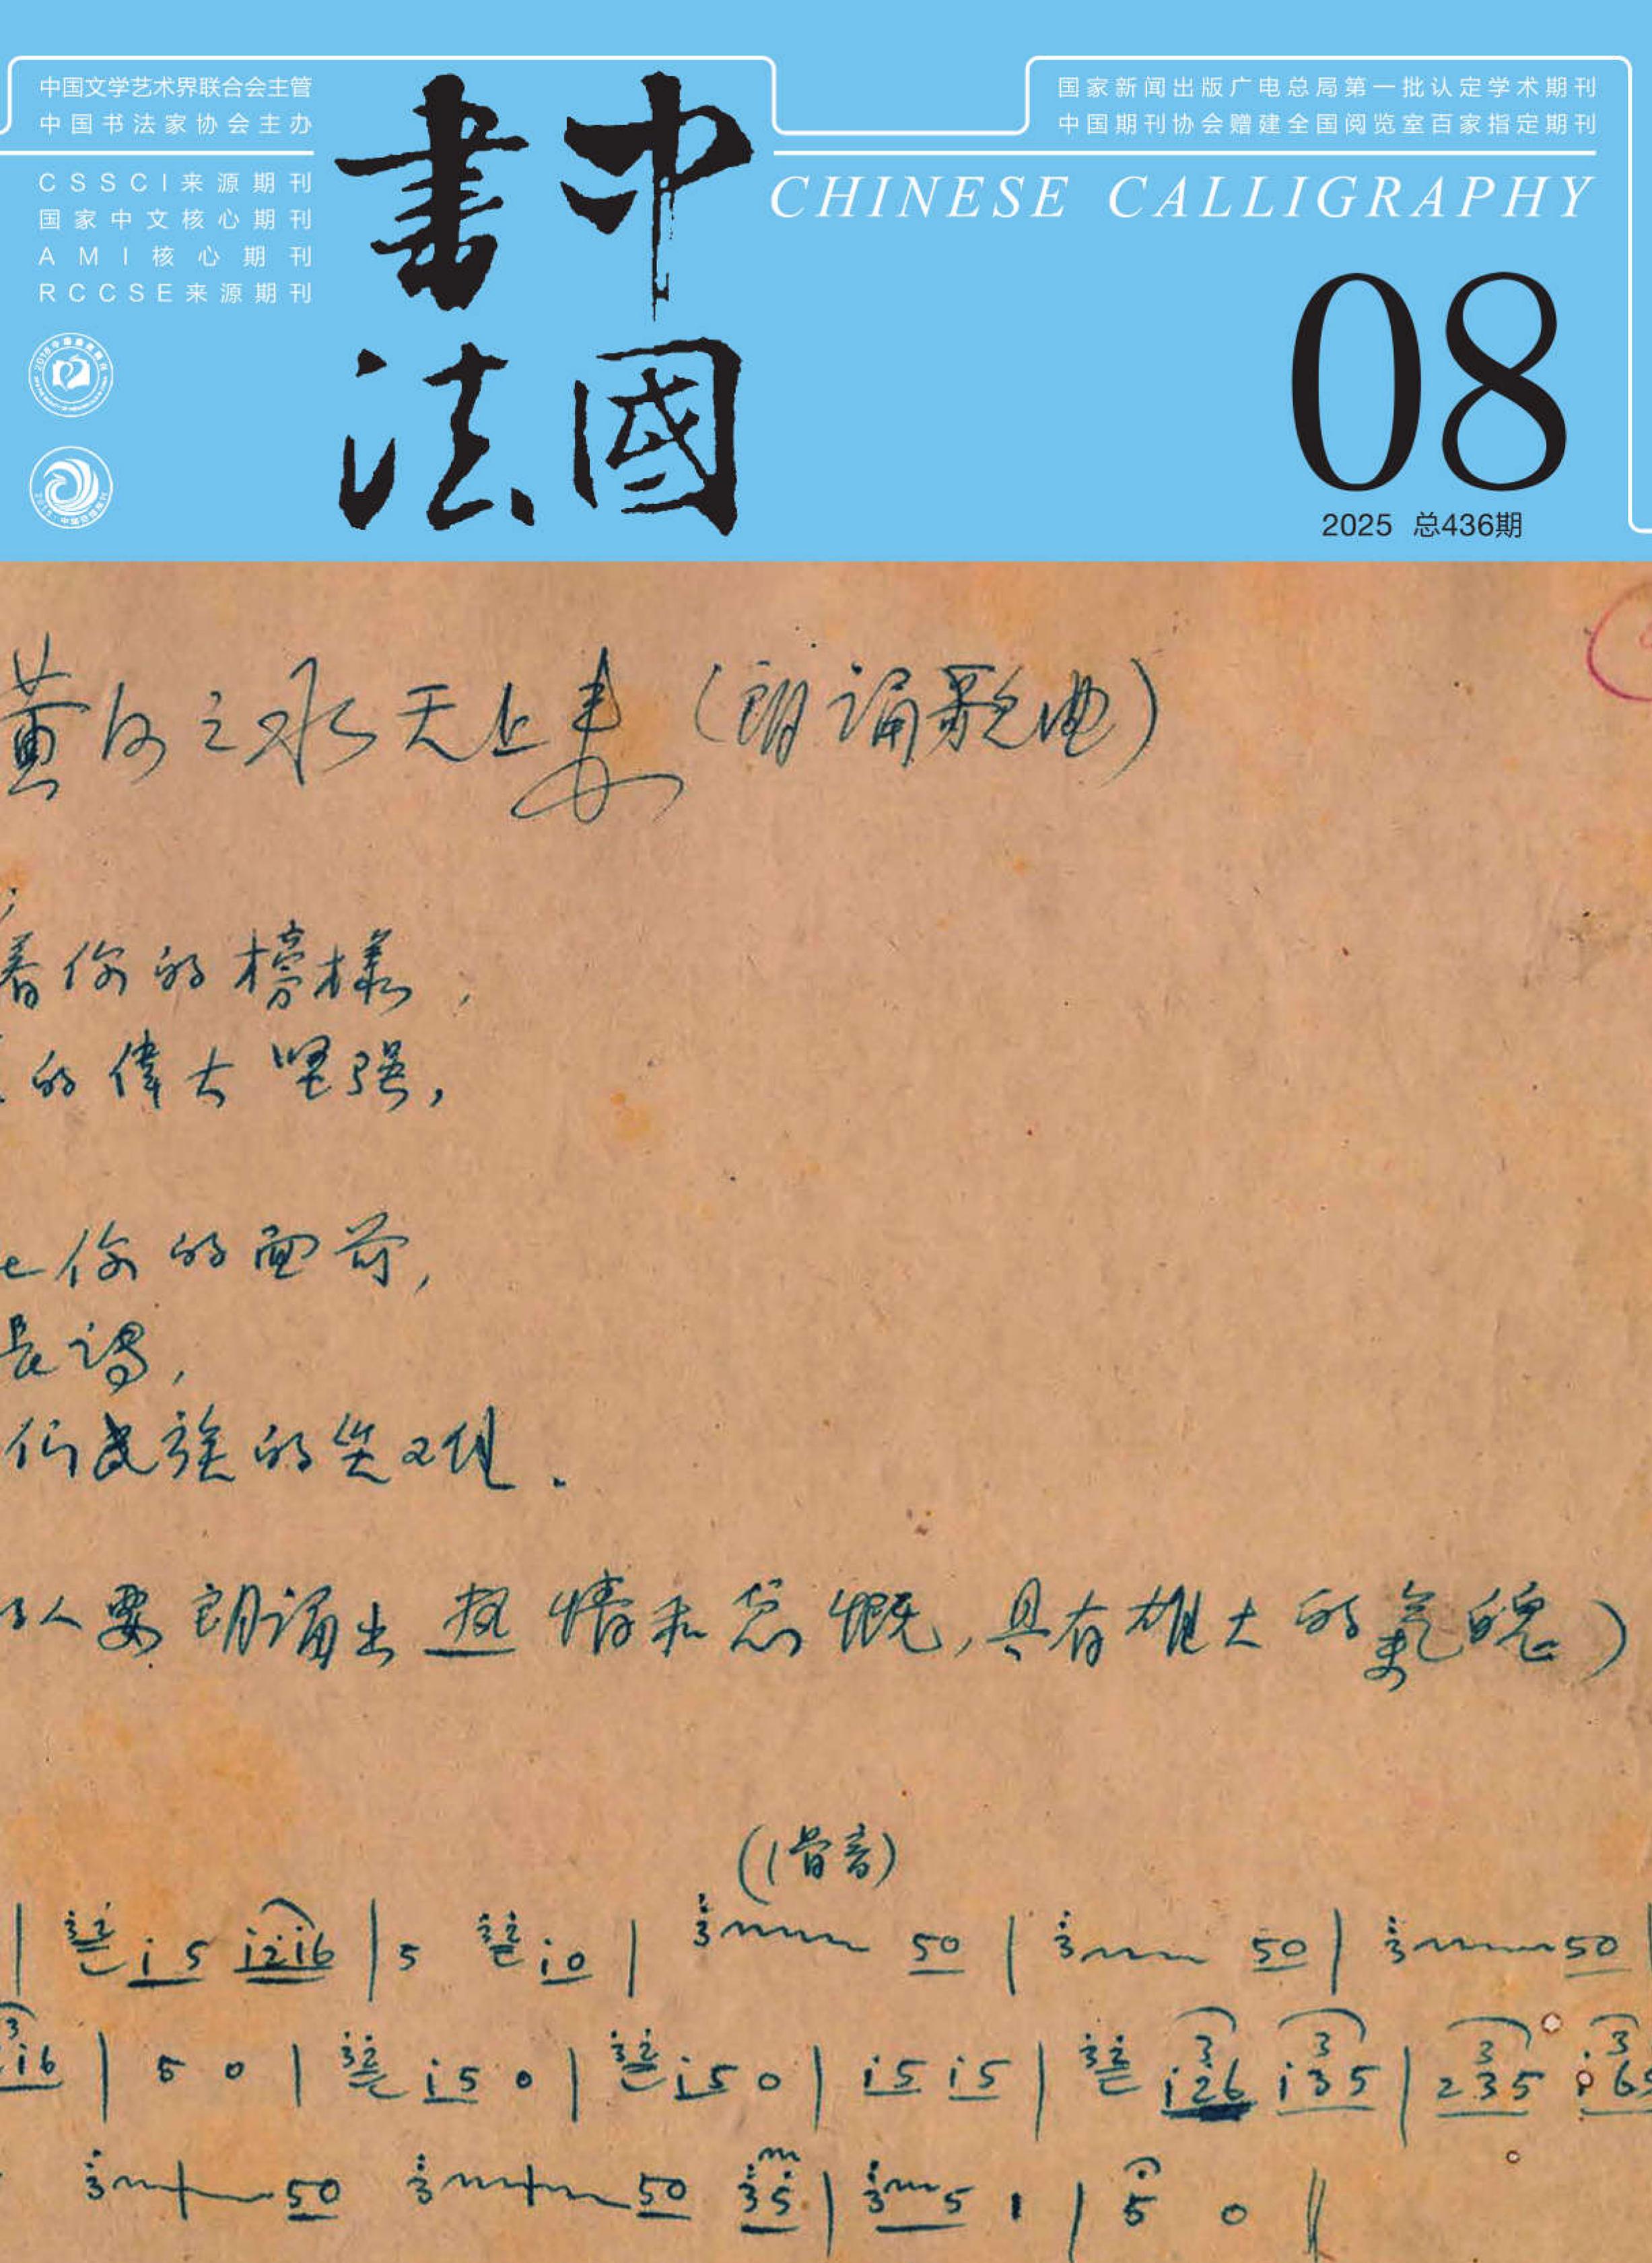 中国文学艺术界联合会主管
中国书法家协会主办
CSSCI来源期刊
国家中文核心期刊
AMI核心期刊
RCCSE来源期刊
中國書法
国家新闻出版广电总局第一批认定学术期刊
中国期刊协会赠建全国阅览室百家指定期刊
CHINESE CALLIGRAPHY
08
2025 总436期
黄河之水天上来（朗诵歌曲）
着你的榜樣，
的偉大坚强，
你的面前，
長謁，
们民族的災难.
人要朗誦出热情和感慨，具有雄大的氣魄）
（滑音）
5 i0 | 50 | 50 | 50
5 0 | i5 0 | i5 0 | i5 i5 | i26 i35 | 235
50 50 35 | 5 | 5 0